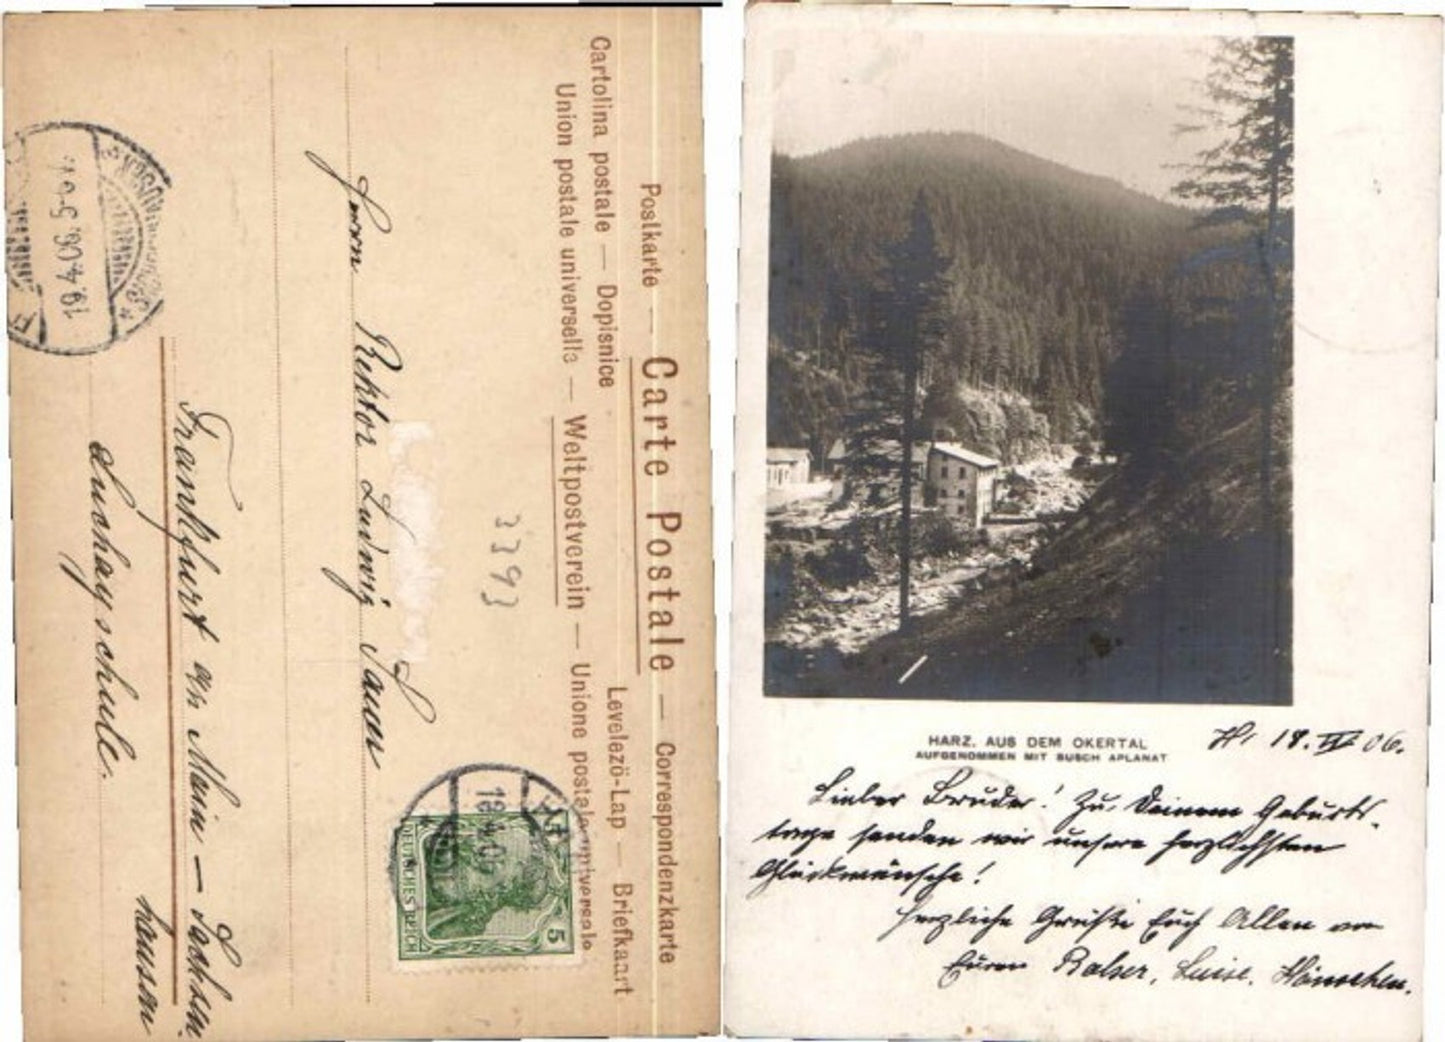 Postkarte — Carte Postale — Correspondenzkarte
Cartolina postale — Dopisnice
Levelezö-Lap — Briefkaart
Union postale universelle — Weltpostverein — Unione postale universale
3393
DEUTSCHES REICH
5
18.4.06
Herrn Rektor Ludwig Sauer
Frankfurt am Main — Sachsen
hausen
Luchayschule.
19.4.06. 5-6 N.
HARZ. AUS DEM OKERTAL
AUFGENOMMEN MIT BUSCH APLANAT
18. IV 06.
Lieber Bruder! Zu Deinem Geburts-
tage senden wir unsere herzlichsten
Glückwünsche!
Herzliche Grüße Euch Allen von
Euren Balser, Luise, Hännchen.